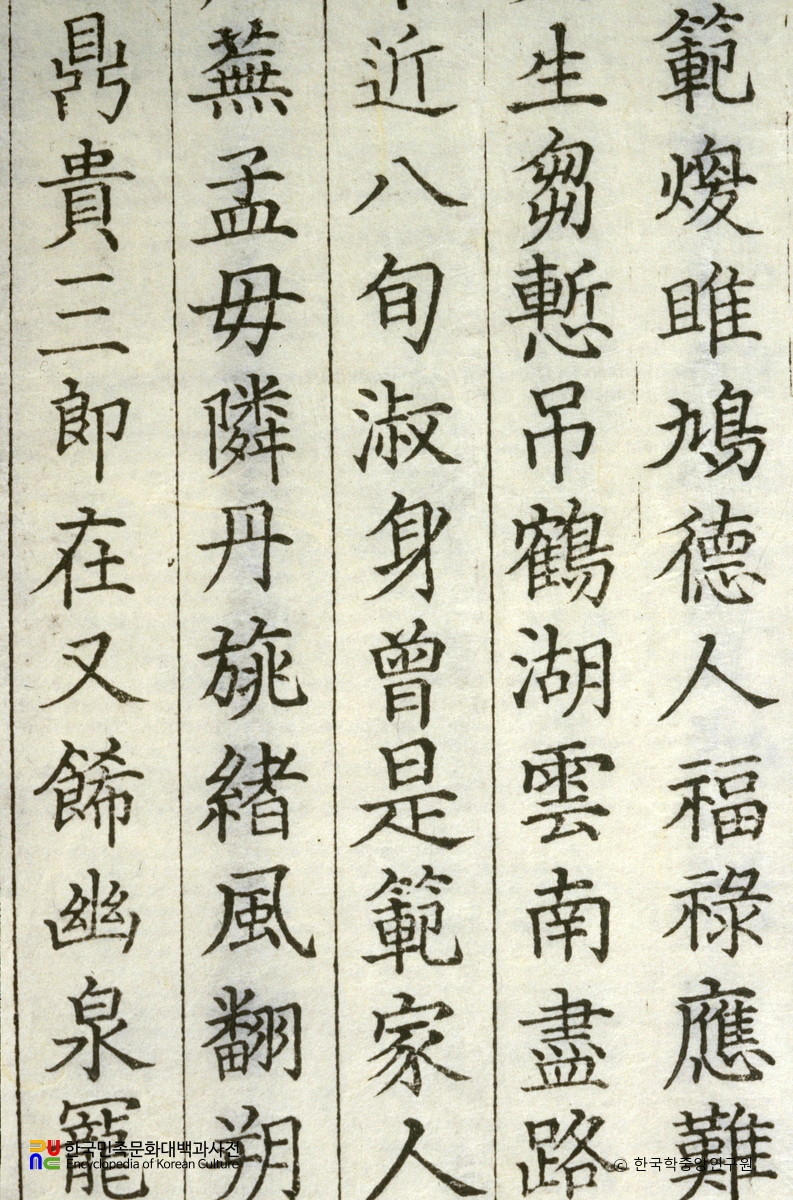 範煖雎鳩德人福祿應難
生芻慙吊鶴湖雲南盡路
近八旬淑身曾是範家人
蕪孟毋隣丹旐緖風翻朔
鼎貴三郞在又餙幽泉寵
한국민족문화대백과사전
Encyclopedia of Korean Culture
© 한국학중앙연구원